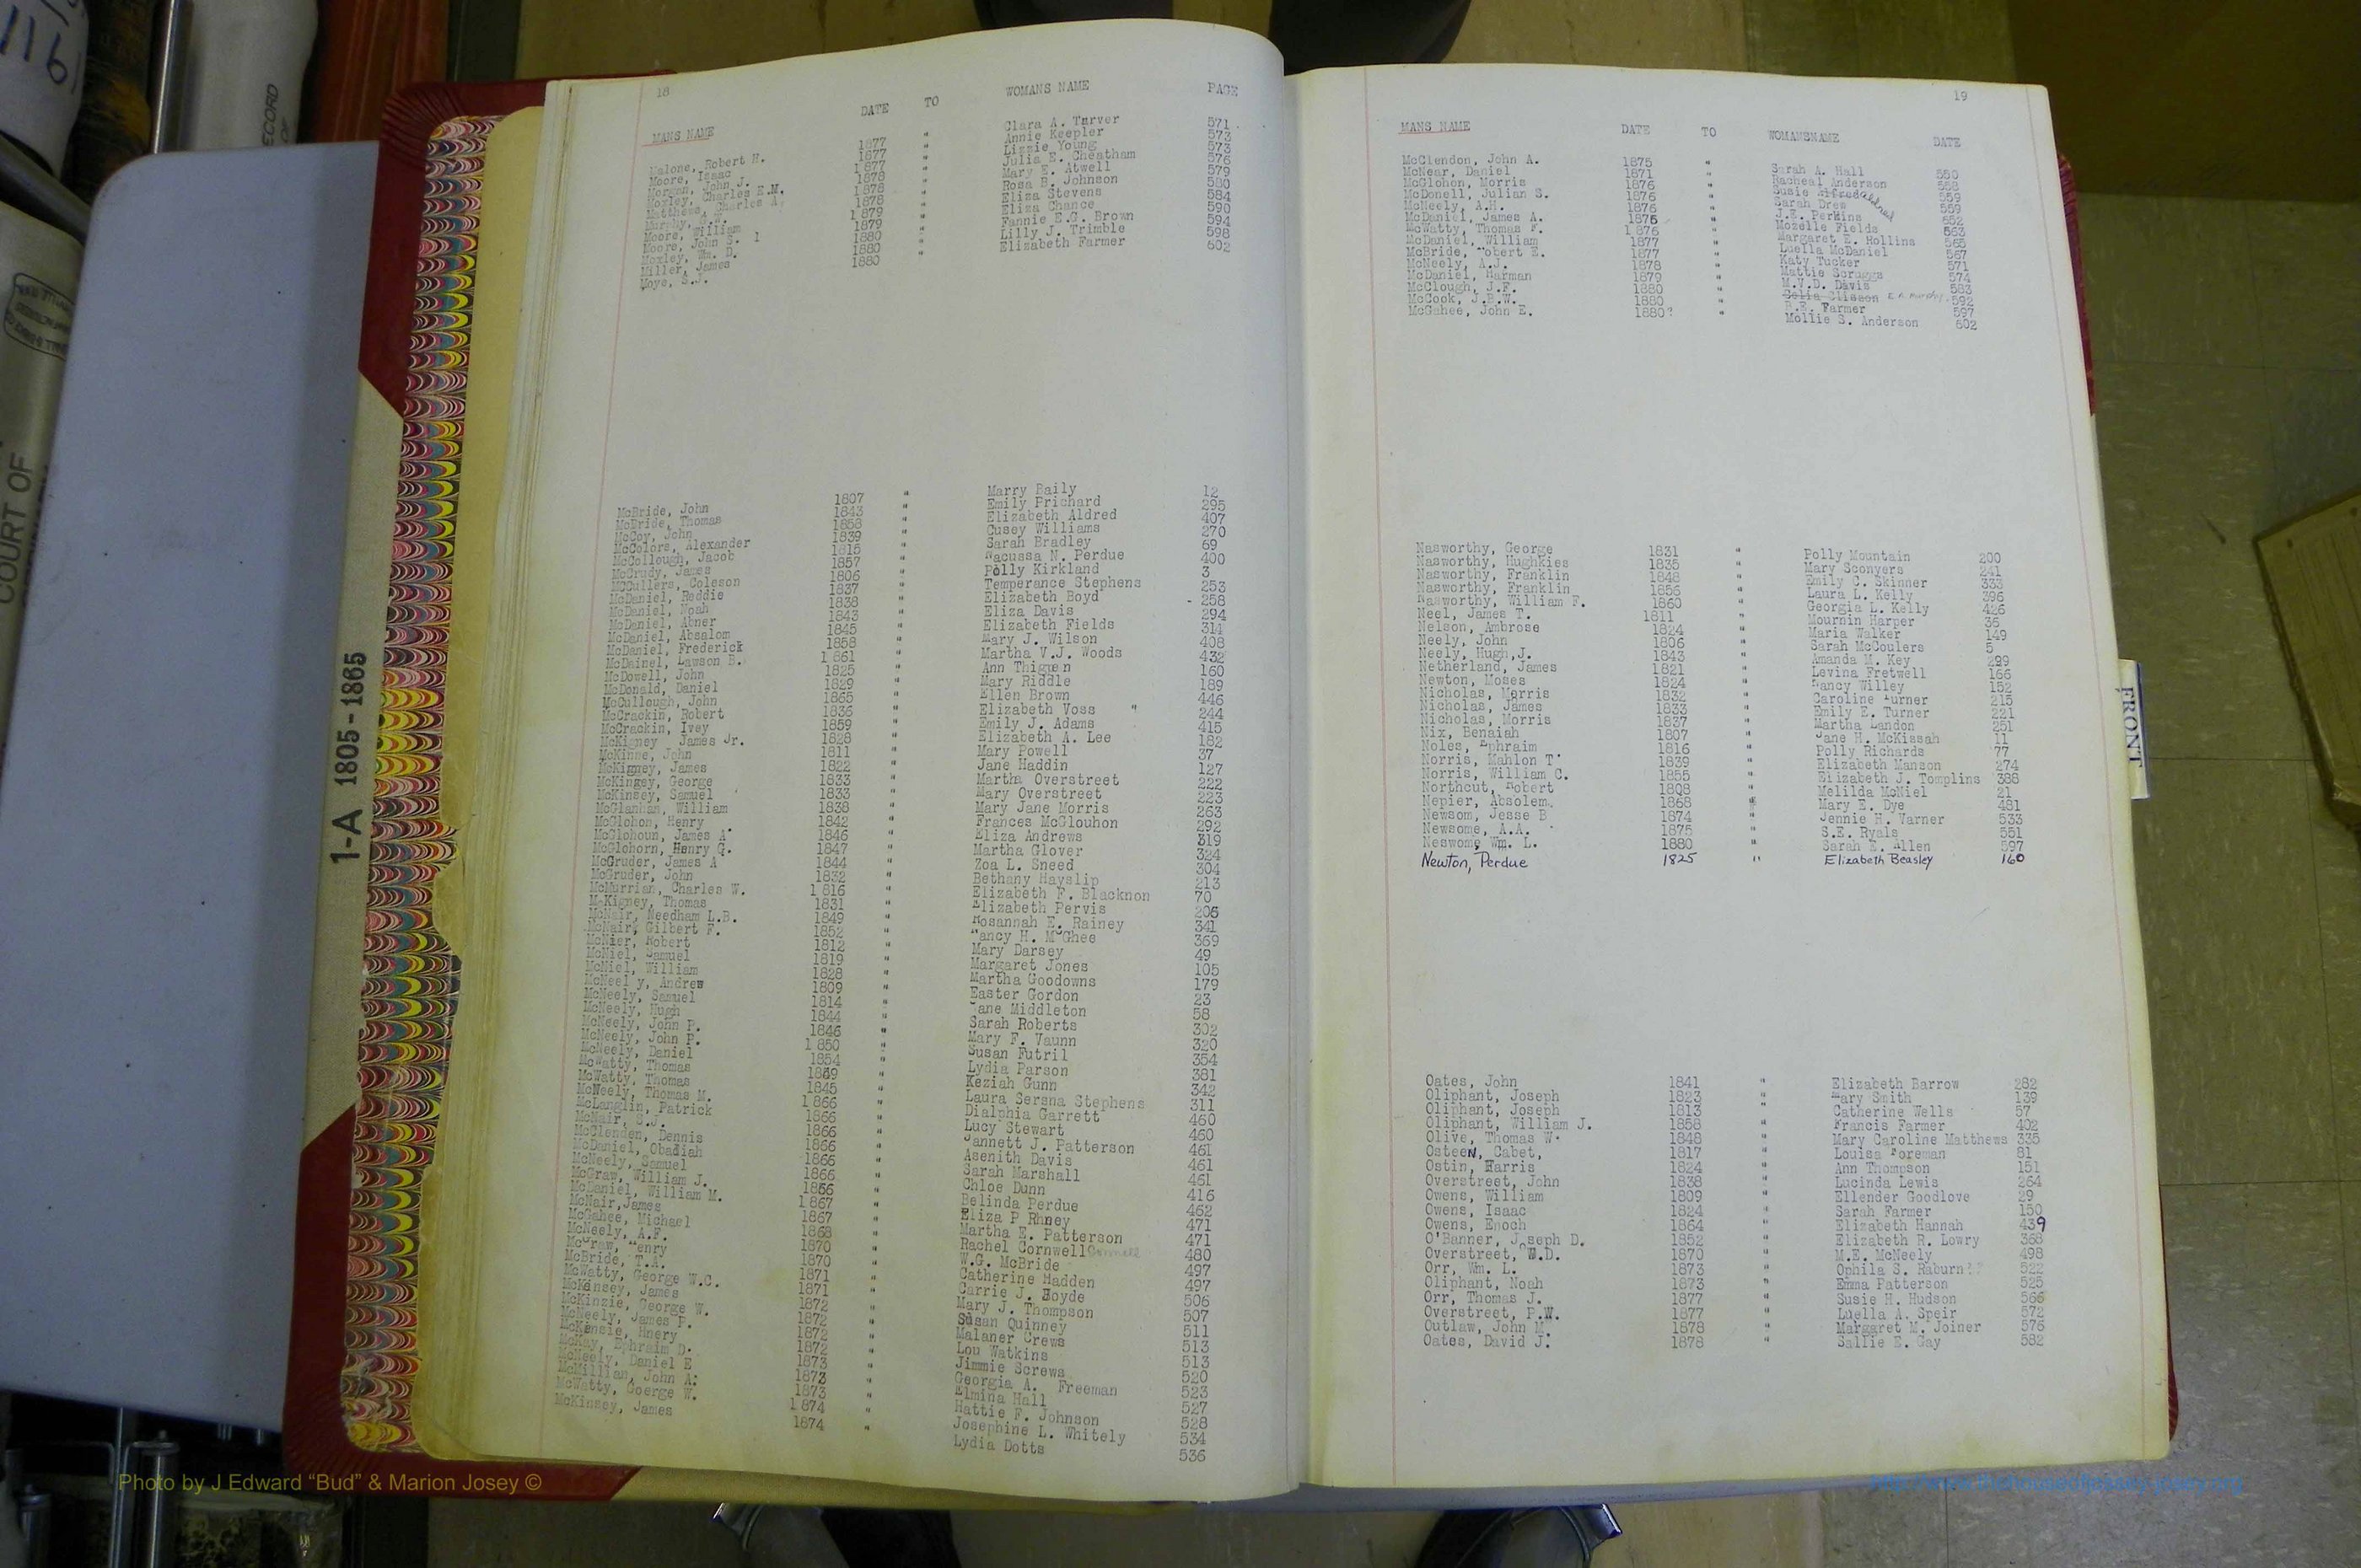 1161
RECORD
COURT OF
1-A 1805-1865
18
MANS NAME DATE TO WOMANS NAME PAGE
Malone, Robert H. 1877 " Clara A. Tarver 571
Moore, Isaac 1877 " Annie Keepler 573
Morgan, John J. 1877 " Lizzie Young 573
Moxley, Charles E.M. 1878 " Julia E. Cheatham 576
Matthews, Charles A. 1878 " Mary E. Atwell 579
Murphy, 1878 " Rosa B. Johnson 580
Moore, William 1879 " Eliza Stevens 584
Moore, John S. 1 1879 " Eliza Chance 590
Moxley, Wm. B. 1880 " Fannie E.G. Brown 594
Miller, James 1880 " Lilly J. Trimble 598
Moye, S.J. 1880 " Elizabeth Farmer 602
McBride, John 1807 " Marry Baily 12
McBride, Thomas 1843 " Emily Prichard 295
McCoy, John 1858 " Elizabeth Aldred 407
McColors, Alexander 1839 " Cusey Williams 270
McCollough, Jacob 1815 " Sarah Bradley 69
McCrudy, James 1857 " Nacussa N. Perdue 400
McCullers, Coleson 1806 " Polly Kirkland 3
McDaniel, Reddie 1837 " Temperance Stephens 253
McDaniel, Noah 1838 " Elizabeth Boyd - 258
McDaniel, Abner 1843 " Eliza Davis 294
McDaniel, Absalom 1845 " Elizabeth Fields 314
McDaniel, Frederick 1858 " Mary J. Wilson 408
McDainel, Lawson B. 1861 " Martha V.J. Woods 432
McDowell, John 1825 " Ann Thigpen 160
McDonald, Daniel 1829 " Mary Riddle 189
McCullough, John 1865 " Ellen Brown 446
McCrackin, Robert 1836 " Elizabeth Voss " 244
McCrackin, Ivey 1859 " Emily J. Adams 415
McKigney James Jr. 1828 " Elizabeth A. Lee 182
McKinne, John 1811 " Mary Powell 37
McKigney, James 1822 " Jane Haddin 127
McKinsey, George 1833 " Martha Overstreet 222
McKinsey, Samuel 1833 " Mary Overstreet 223
McGlanhan, William 1838 " Mary Jane Morris 263
McGlohon, Henry 1842 " Frances McGlouhon 292
McGlohoun, James A. 1846 " Eliza Andrews 319
McGlohorn, Henry G. 1847 " Martha Glover 324
McGruder, James A 1844 " Zoa L. Sneed 304
McGruder, John 1832 " Bethany Hayslip 213
McMurrian, Charles W. 1816 " Elizabeth F. Blacknon 70
McKigney, Thomas 1831 " Elizabeth Pervis 205
McNair, Needham L.B. 1849 " Rosannah E. Rainey 341
McNair, Gilbert F. 1852 " Nancy H. McGhee 369
McNier, Robert 1812 " Mary Darsey 49
McNiel, Samuel 1819 " Margaret Jones 105
McNiel, William 1828 " Martha Goodowns 179
McNeel y, Andrew 1809 " Easter Gordon 23
McNeely, Samuel 1814 " Jane Middleton 58
McNeely, Hugh 1844 " Sarah Roberts 302
McNeely, John P. 1846 " Mary F. Vaunn 320
McNeely, John P. 1850 " Susan Futril 354
McNeely, Daniel 1854 " Lydia Parson 381
McWatty, Thomas 1849 " Keziah Gunn 342
McWatty, Thomas 1845 " Laura Sersna Stephens 311
McNeely, Thomas M. 1866 " Dialphia Garrett 460
McLanglin, Patrick 1866 " Lucy Stewart 460
McNair, S.J. 1866 " Jannett J. Patterson 461
McClenden, Dennis 1866 " Asenith Davis 461
McDaniel, Obadiah 1866 " Sarah Marshall 461
McNeely, Samuel 1866 " Chloe Dunn 416
McGraw, William J. 1866 " Belinda Perdue 462
McDaniel, William M. 1867 " Eliza P Rhney 471
McNair,James 1867 " Martha E. Patterson 471
McGahee, Michael 1868 " Rachel Cornwell 480
McNeely, A.F. 1870 " W.G. McBride 497
McGraw, Henry 1870 " Catherine Hadden 497
McBride, T.A. 1871 " Carrie J. Boyde 506
McWatty, George W.C. 1871 " Mary J. Thompson 507
McKinsey, James 1872 " Susan Quinney 511
McKinzie, George W. 1872 " Malaner Crews 513
McNeely, James P. 1872 " Lou Watkins 513
McKensie, Hnery 1872 " Jimmie Screws 520
McKay, Ephraim D. 1873 " Georgia A. Freeman 523
McNeely, Daniel E 1873 " Elmina Hall 527
McMillian, John A. 1873 " Hattie F. Johnson 528
McWatty, Goerge W. 1874 " Josephine L. Whitely 534
McKinsey, James 1874 " Lydia Dotts 536
19
MANS NAME DATE TO WOMANSNAME DATE
McClendon, John A. 1875 " Sarah A. Hall 550
McNear, Daniel 1871 " Racheal Anderson 558
McGlohon, Morris 1876 " Susie Aldred 559
McDonell, Julian S. 1876 " Sarah Drew 559
McNeely, A.H. 1876 " J.E. Perkins 552
McDaniel, James A. 1876 " Mozelle Fields 563
McWatty, Thomas F. 1876 " Margaret E. Rollins 565
McDaniel, William 1877 " Luella McDaniel 567
McBride, Robert E. 1877 " Katy Tucker 571
McNeely, A.J. 1878 " Mattie Scruggs 574
McDaniel, Harman 1879 " M.V.D. Davis 583
McClough, J.F. 1880 " Celia Clisson E A Murphy 592
McCook, J.B.W. 1880 " R.E. Farmer 597
McGahee, John E. 1880? " Mollie S. Anderson 602
Nasworthy, George 1831 " Polly Mountain 200
Nasworthy, Hughkies 1835 " Mary Sconyers 241
Nasworthy, Franklin 1848 " Emily C. Skinner 333
Nasworthy, Franklin 1856 " Laura L. Kelly 396
Nasworthy, William F. 1860 " Georgia L. Kelly 426
Neel, James T. 1811 " Mournin Harper 36
Nelson, Ambrose 1824 " Maria Walker 149
Neely, John 1806 " Sarah McCoulers 5
Neely, Hugh,J. 1843 " Amanda M. Key 299
Netherland, James 1821 " Levina Fretwell 166
Newton, Moses 1824 " Nancy Willey 152
Nicholas, Morris 1832 " Caroline Turner 215
Nicholas, James 1833 " Emily E. Turner 221
Nicholas, Morris 1837 " Martha Landon 251
Nix, Benaiah 1807 " Jane H. McKissah 11
Noles, Ephraim 1816 " Polly Richards 77
Norris, Mahlon T. 1839 " Elizabeth Manson 274
Norris, William C. 1855 " Elizabeth J. Tomplins 388
Northcut, Robert 1808 " Melilda McNiel 21
Nepier, Absolem. 1868 " Mary E. Dye 481
Newsom, Jesse B 1874 " Jennie H. Varner 533
Newsome, A.A. 1875 " S.E. Ryals 551
Neswome, Wm. L. 1880 " Sarah E. Allen 597
Newton, Perdue 1825 " Elizabeth Beasley 160
Oates, John 1841 " Elizabeth Barrow 282
Oliphant, Joseph 1823 " Mary Smith 139
Oliphant, Joseph 1813 " Catherine Wells 57
Oliphant, William J. 1858 " Francis Farmer 402
Olive, Thomas W. 1848 " Mary Caroline Matthews 335
Osteen, Cabet, 1817 " Louisa Foreman 81
Ostin, Harris 1824 " Ann Thompson 151
Overstreet, John 1838 " Lucinda Lewis 264
Owens, William 1809 " Ellender Goodlove 29
Owens, Isaac 1824 " Sarah Farmer 150
Owens, Enoch 1864 " Elizabeth Hannah 439
O'Banner, Joseph D. 1852 " Elizabeth R. Lowry 368
Overstreet, W.D. 1870 " M.E. McNeely 498
Orr, Wm. L. 1873 " Ophila S. Raburn?? 522
Oliphant, Noah 1873 " Emma Patterson 525
Orr, Thomas J. 1877 " Susie H. Hudson 566
Overstreet, P.W. 1877 " Luella A. Speir 572
Outlaw, John M. 1878 " Margaret M. Joiner 576
Oates, David J. 1878 " Sallie E. Gay 582
FRONT
Photo by J Edward “Bud” & Marion Josey ©
http://www.thehouseofjossey-josey.org